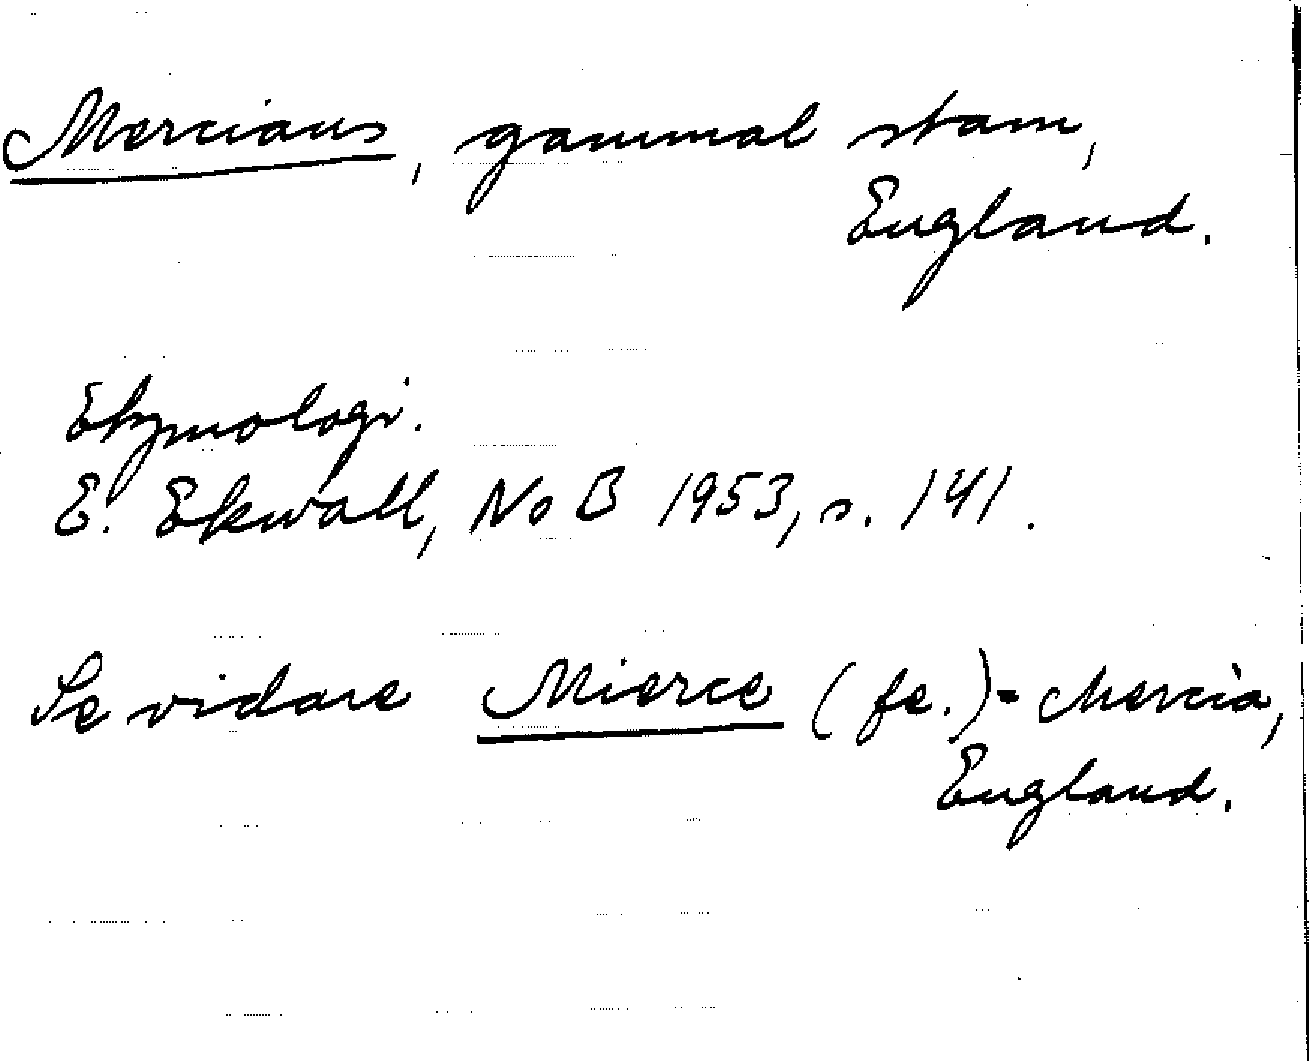 Mercians, gammal stam,
England.
Etymologi.
E. Ekwall, NoB 1953, s. 141.
Se vidare Mierce (fe.) = Mercia,
England.